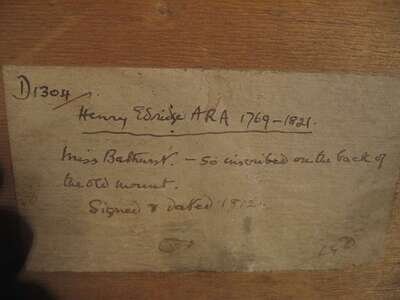 D1304/
Henry Edridge ARA 1769-1821.
Miss Bathurst. - So inscribed on the back of
the old mount.
Signed & dated 1812.